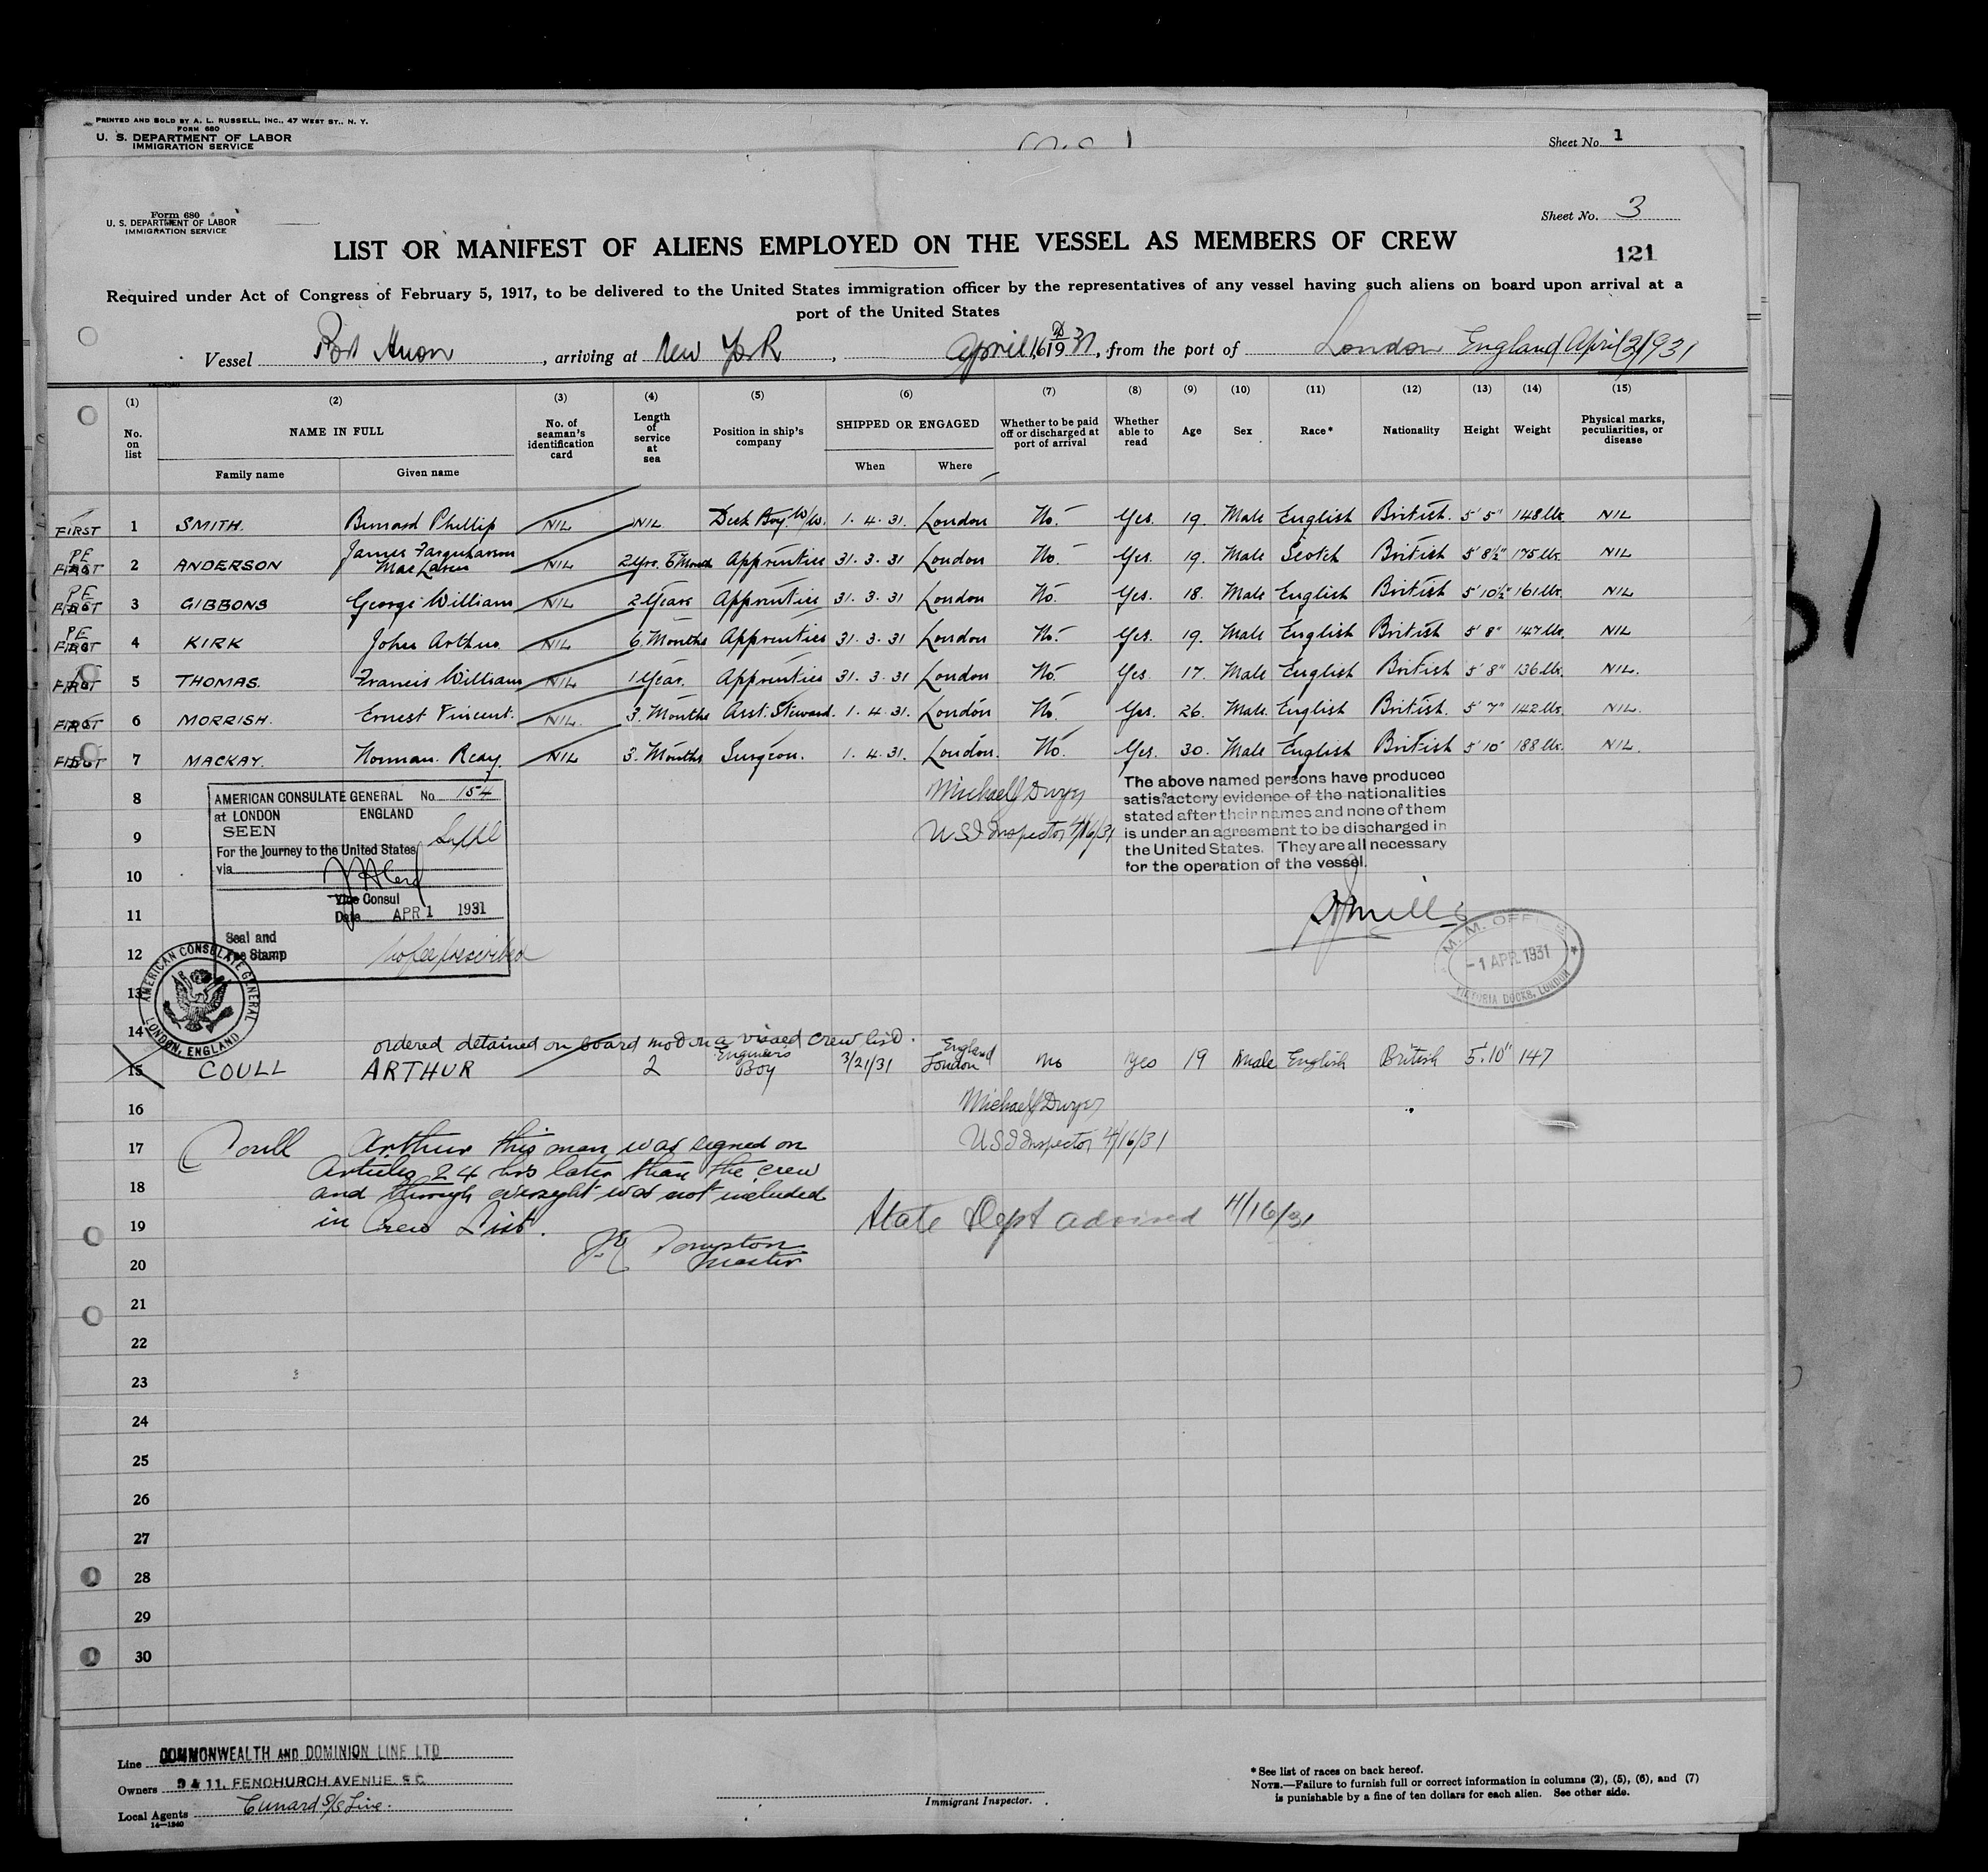 PRINTED AND SOLD BY A. L. RUSSELL, INC., 47 WEST ST., N. Y.
FORM 680
U. S. DEPARTMENT OF LABOR
IMMIGRATION SERVICE
Sheet No. 1
Form 680
U. S. DEPARTMENT OF LABOR
IMMIGRATION SERVICE
Sheet No. 3
LIST OR MANIFEST OF ALIENS EMPLOYED ON THE VESSEL AS MEMBERS OF CREW
121
Required under Act of Congress of February 5, 1917, to be delivered to the United States immigration officer by the representatives of any vessel having such aliens on board upon arrival at a
port of the United States
Vessel Port Huon, arriving at New York, April 16 1931, from the port of London England April 2/1931
(1) (2) (3) (4) (5) (6) (7) (8) (9) (10) (11) (12) (13) (14) (15)
No. on list
NAME IN FULL
Family name Given name
No. of seaman's identification card
Length of service at sea
Position in ship's company
SHIPPED OR ENGAGED
When Where
Whether to be paid off or discharged at port of arrival
Whether able to read
Age Sex Race* Nationality Height Weight
Physical marks, peculiarities, or disease
FIRST 1 SMITH. Bernard Phillip NIL NIL Deck Boy. W/W. 1.4.31. London No. Yes. 19. Male English British. 5' 5" 148 lbs. NIL
PE FIRST 2 ANDERSON James Farquharson MacLaren NIL 2 Yrs. 6 Months Apprentice 31.3.31 London No. Yes. 19. Male Scotch British 5' 8½" 175 lbs. NIL
PE FIRST 3 GIBBONS George William NIL 2 Years Apprentice 31.3.31 London No. Yes. 18. Male English British 5' 10½" 161 lbs. NIL
PE FIRST 4 KIRK John Arthur NIL 6 Months Apprentice 31.3.31 London No. Yes. 19. Male English British 5' 8" 147 lbs. NIL
FIRST 5 THOMAS. Francis William NIL 1 Year. Apprentice 31.3.31 London No. Yes. 17. Male English British 5' 8" 136 lbs. NIL.
FIRST 6 MORRISH. Ernest Vincent. NIL. 3. Months Asst. Steward. 1.4.31. London No. Yes. 26. Male. English British. 5' 7" 142 lbs. NIL.
FIRST 7 MACKAY. Norman. Reay. NIL 3. Months Surgeon. 1.4.31. London. No. Yes. 30. Male English British 5' 10" 188 lbs. NIL.
8
9
10
11
12
13
14
AMERICAN CONSULATE GENERAL No. 154
at LONDON ENGLAND
SEEN
For the Journey to the United States
via
Vice Consul
Date APR 1 1931
Seal and
Fee Stamp
No fee prescribed
AMERICAN CONSULATE GENERAL
LONDON, ENGLAND
Michael J Dwyer
US I Inspector 4/16/31
The above named persons have produced
satisfactory evidence of the nationalities
stated after their names and none of them
is under an agreement to be discharged in
the United States. They are all necessary
for the operation of the vessel.
M. M. OFFICE
-1 APR. 1931
VICTORIA DOCKS, LONDON
ordered detained on board not on a visaed crew list.
15 COULL ARTHUR 2 Engineers Boy 3/21/31 England London no yes 19 male English British 5'.10" 147
16
Michael J Dwyer
US I Inspector 4/16/31
17
Coull Arthur this man was signed on
Articles 24 hrs later than the crew
18
and through oversight was not included
19
in Crew List.
State Dept advised 4/16/31
Master
20
21
22
23
24
25
26
27
28
29
30
Line COMMONWEALTH AND DOMINION LINE LTD
Owners 9 & 11, FENCHURCH AVENUE E C
Local Agents Cunard S/S Line.
14—1240
Immigrant Inspector.
* See list of races on back hereof.
NOTE.—Failure to furnish full or correct information in columns (2), (5), (6), and (7)
is punishable by a fine of ten dollars for each alien. See other side.